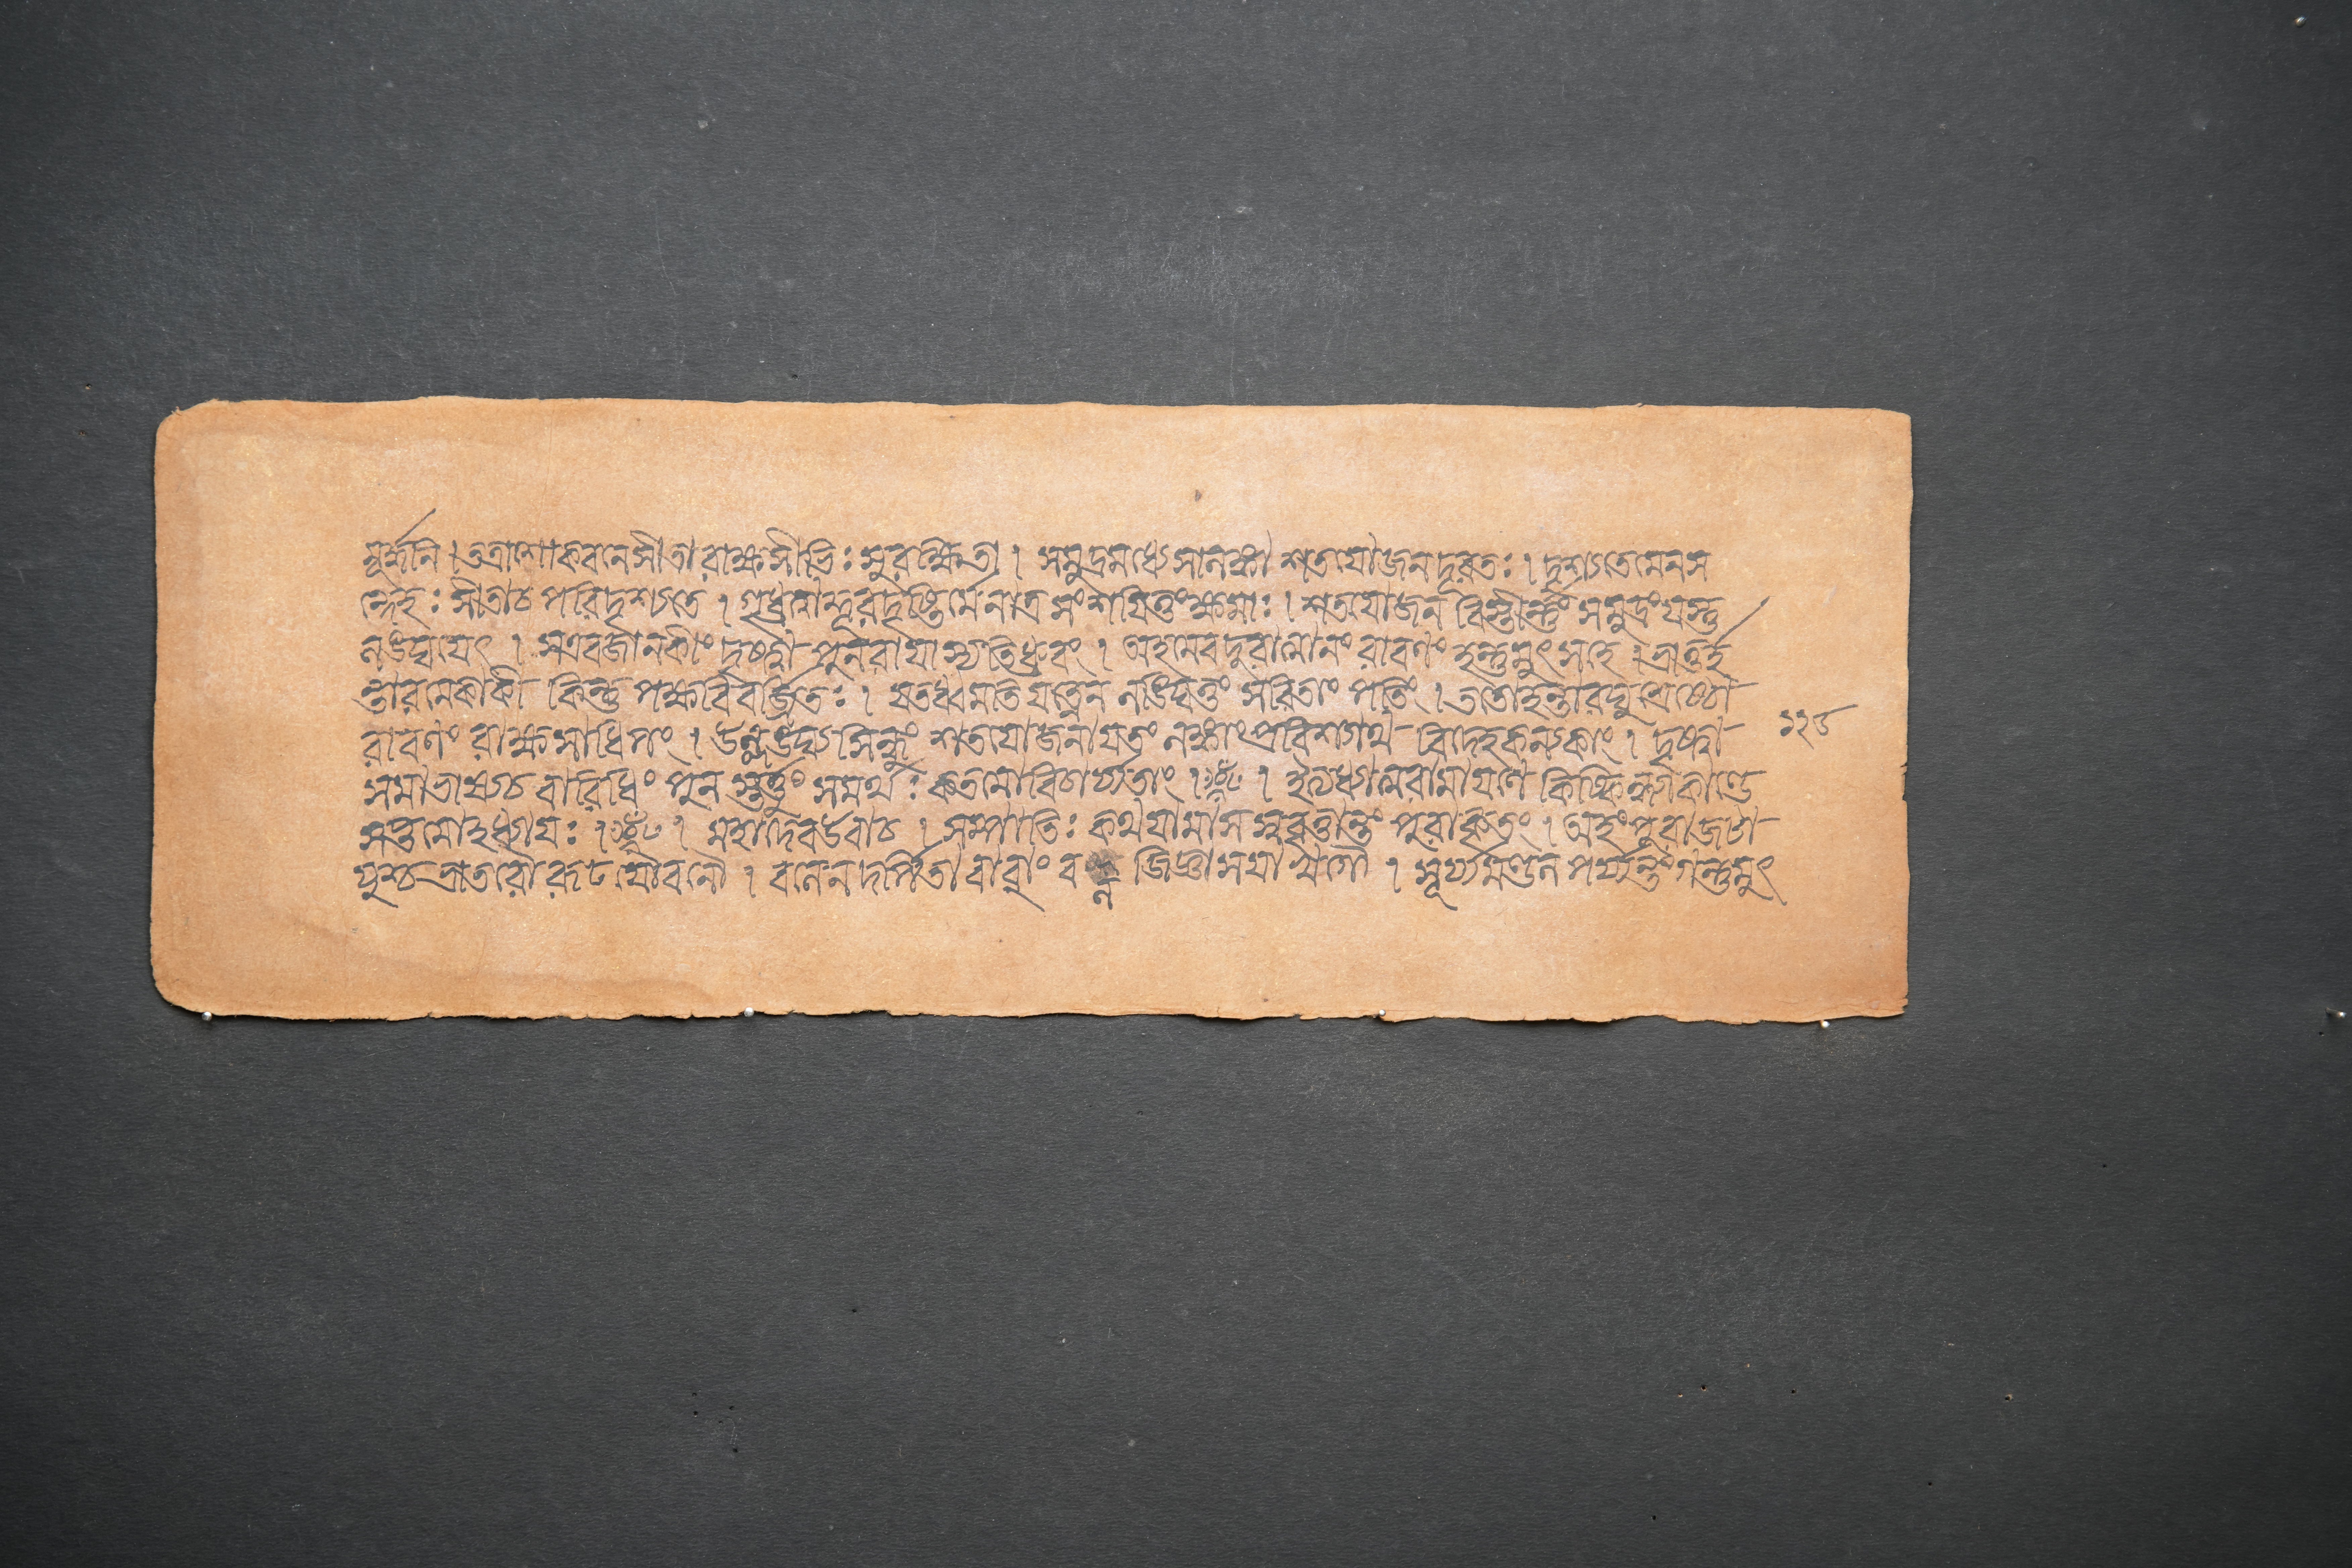 মূৰ্দ্ধনি । তত্রাশোকবনে সীতা রাক্ষসীভিঃ সুরক্ষিতা । সমুদ্রমধ্যে সা লঙ্কা শতযোজনদূরতঃ । দৃশ্যতে মে ন স
ন্দেহঃ সীতা চ পরিদৃশ্যতে । গৃধ্রত্বাদ্দূরদৃষ্টির্মে নাত্র সংশয়িতুং ক্ষমাঃ । শতযোজনবিস্তীর্ণং সমুদ্রং যস্তু
লঙ্ঘয়েৎ । স এব জানকীং দৃষ্ট্বা পুনরায়াস্যতি ধ্রুবং । অহমেব দুরাত্মানং রাবণং হন্তুমুৎসহে । ভ্রাতুর্হ
ন্তারমেকাকী কিন্তু পক্ষবিবর্জিতঃ । যতধ্বমতিযত্নেন লঙ্ঘিতুং সরিতাং পতিং । ততো হন্তা রঘুশ্রেষ্ঠো
রাবণং রাক্ষসাধিপং । উল্লঙ্ঘ্য সিন্ধুং শতযোজনায়তং লঙ্কাং প্রবিশ্যাথ বিদেহকন্যকাং । দৃষ্ট্বা
সমাভাষ্য চ বারিধিং পুনস্তর্ত্তুং সমর্থঃ কতমো বিচার্য্যতাং । । ইত্যধ্যাত্মরামায়ণে কিষ্কিন্ধ্যাকাণ্ডে
সপ্তমোহধ্যায়ঃ । । মহাদেব উবাচ । সম্পাতিঃ কথয়ামাস স্ববৃত্তান্তং পুরাকৃতং । অহং পুরা জটা
য়ুশ্চ ভ্রাতরৌ রূঢযৌবনৌ । বলেন দর্পিতাবাবাং বল জিজ্ঞাসয়া খগৌ । সূর্য্যমণ্ডলপর্য্যন্তং গন্তুমুৎ